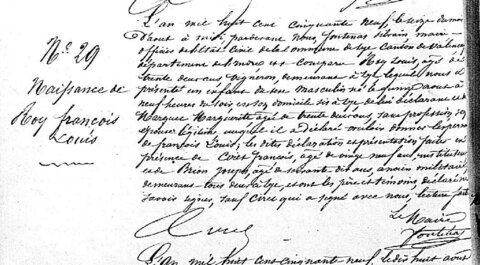 N.º 29
Naissance de
Roy françois
Louis
L'an mil huit cent cinquante neuf, le seize du mois
d'août à midi, pardevant Nous, fontenas silvain, maire
officier de l'état civil de la commune de Lye, Canton de Valençay
département de l'Indre est comparu Roy Louis, âgé de
trente deux ans, vigneron, demeurant à Lye lequel nous a
présenté un enfant du sexe masculin né le août à
neuf heures du soir en son domicile, sis à Lye de lui déclarant et
de Marguerite âgée de trente deux ans, sans profession, son
épouse légitime, auquel il a déclaré vouloir donner les prénoms
de françois Louis, les dites déclaration et présentation faites en
présence de françois, âgé de vingt neuf ans, instituteur
et de Brion Joseph, âgé de soixante dix ans, ancien militaire,
demeurans tous deux à Lye, et ont les père et témoins, déclaré ne
savoir signer, sauf qui a signé avec nous, lecture faite
Le Maire
L'an mil huit cent cinquante neuf, le dix huit août